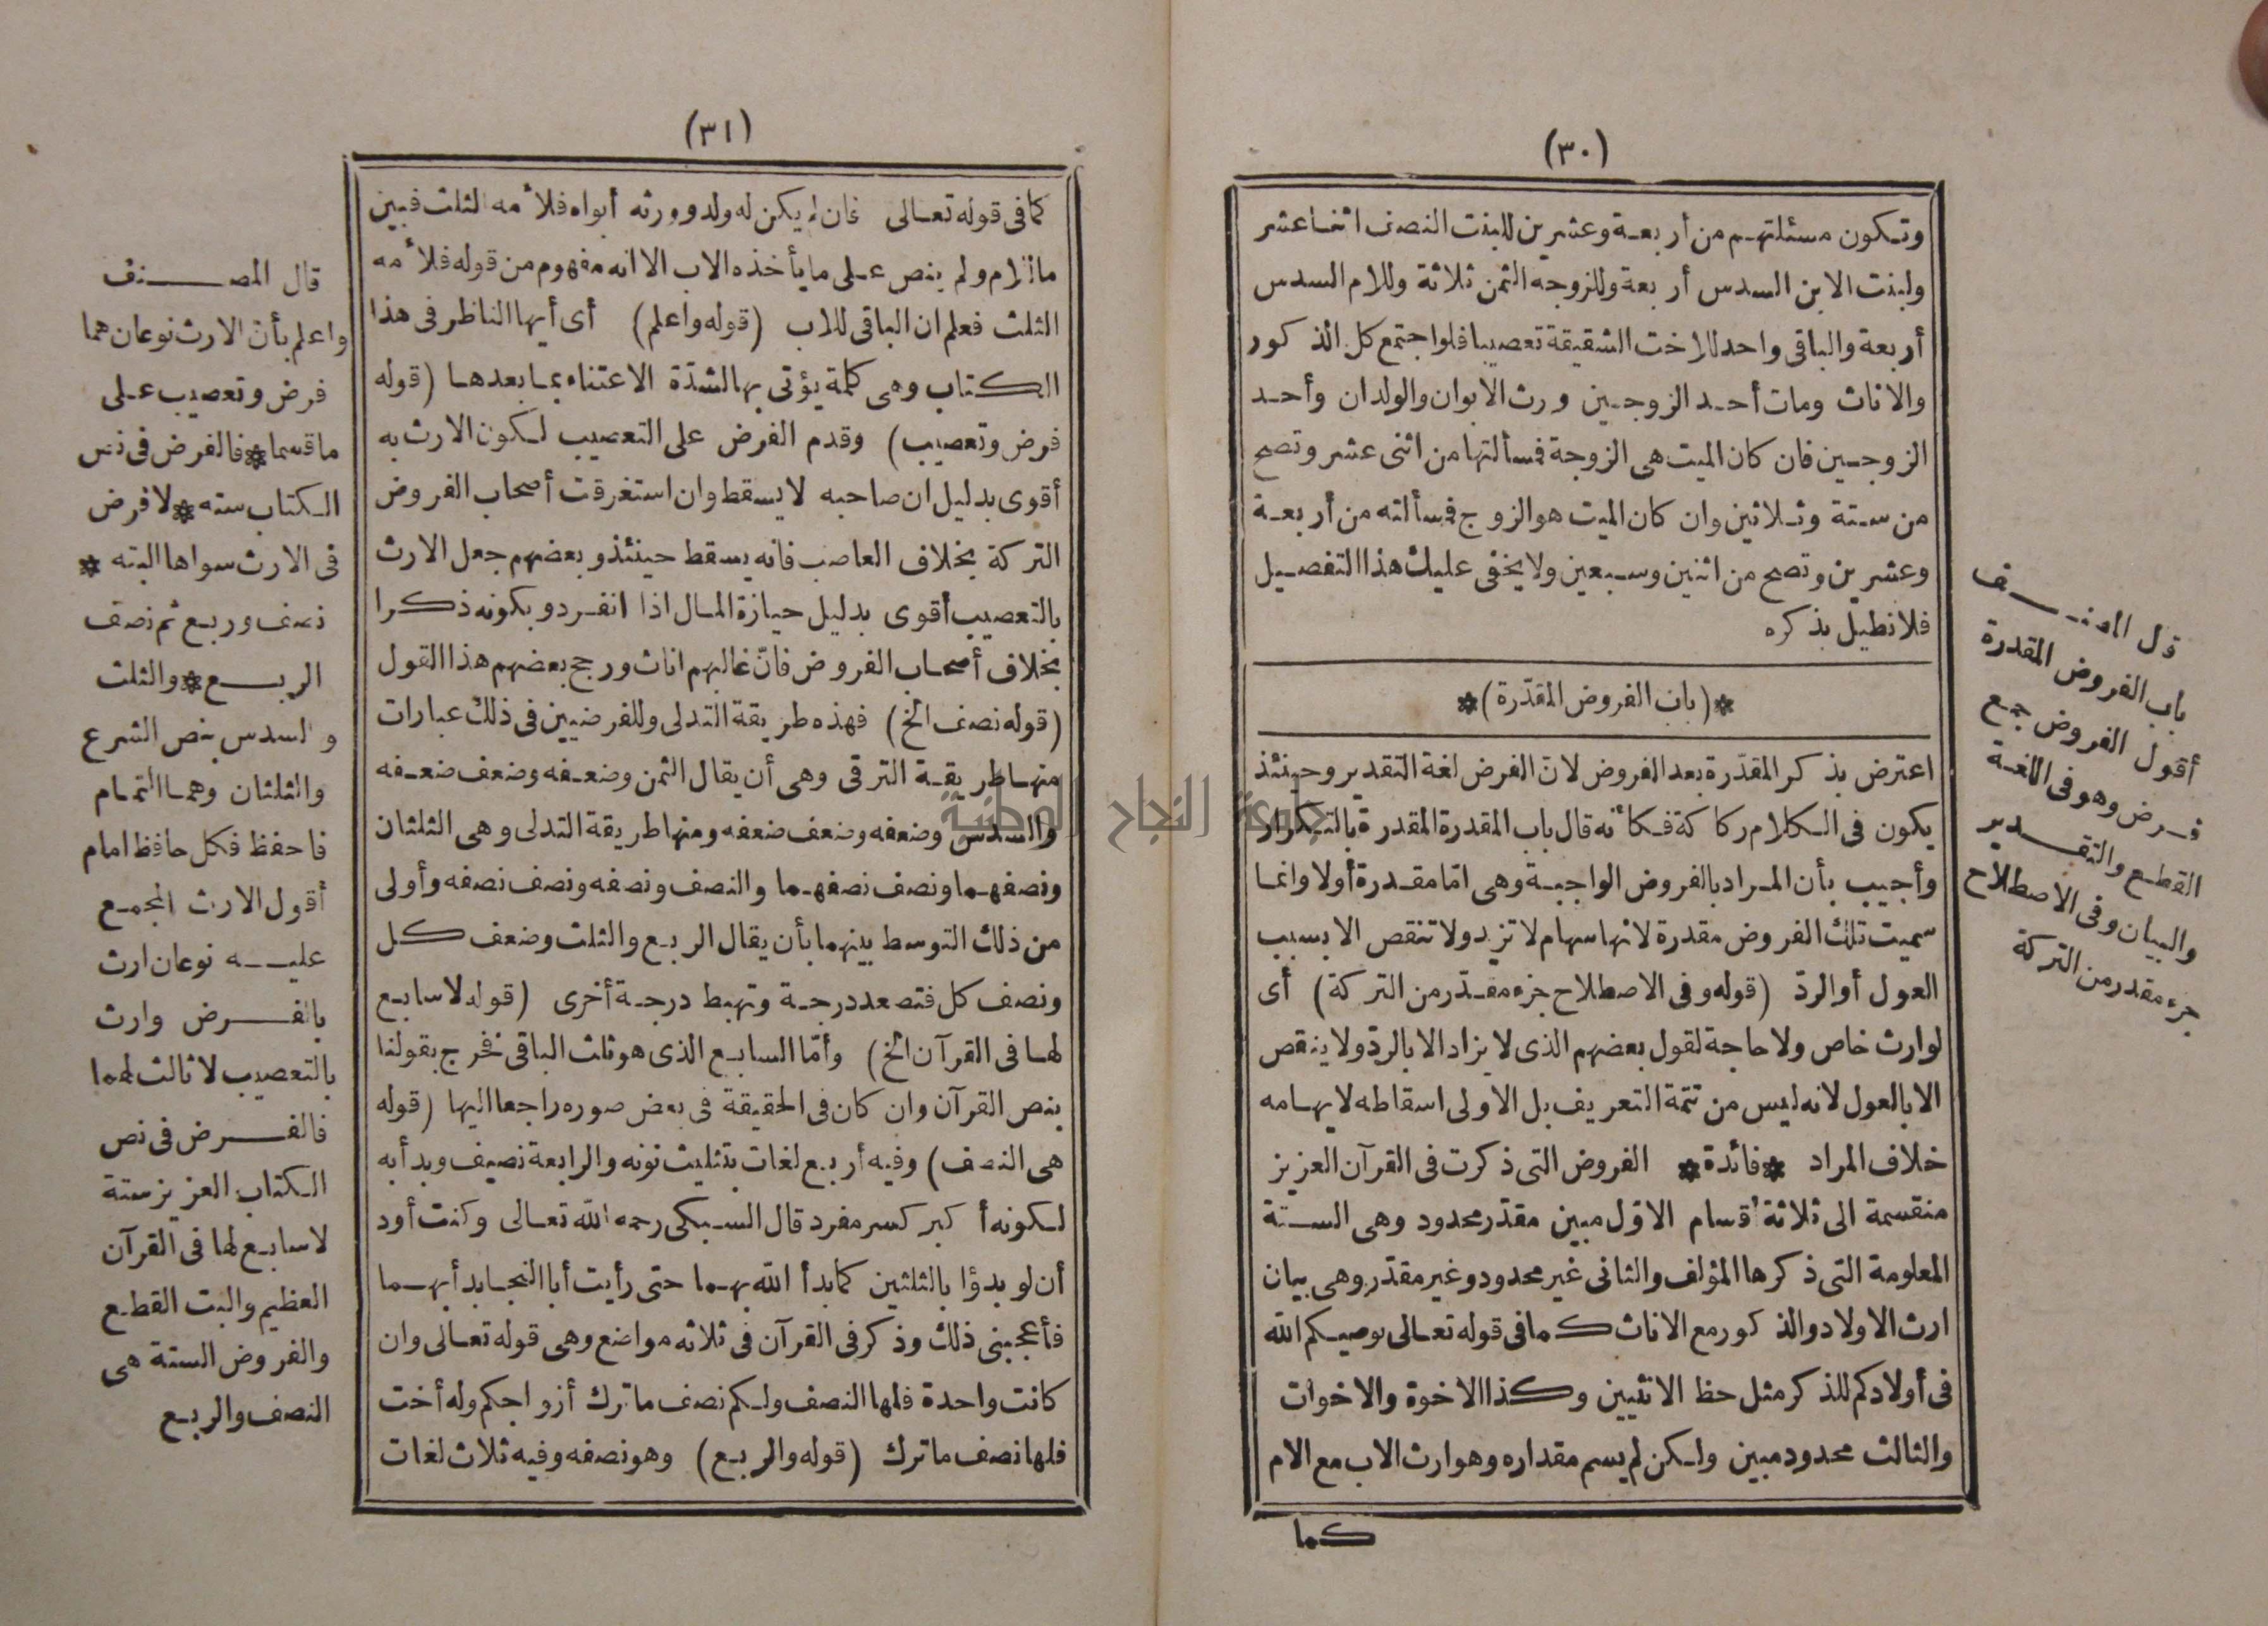 (٣٠)
وتكون مسئلتهم من أربعة وعشرين للبنت النصف اثنا عشر
ولبنت الابن السدس أربعة وللزوجة الثمن ثلاثة وللام السدس
أربعة والباقى واحد للاخت الشقيقة تعصيبا فلو اجتمع كل الذكور
والاناث ومات أحد الزوجين ورث الابوان والولدان وأحد
الزوجين فان كان الميت هى الزوجة فمسألتها من اثنى عشر وتصح
من ستة وثلاثين وان كان الميت هو الزوج فمسألته من أربعة
وعشرين وتصح من اثنين وسبعين ولا يخفى عليك هذا التفصيل
فلا نطيل بذكره
*(باب الفروض المقدّرة)*
اعترض بذكر المقدّرة بعد الفروض لان الفرض لغة التقدير وحينئذ
يكون فى الكلام ركاكة فكأنه قال باب المقدرة المقدرة بالتكرار
وأجيب بأن المراد بالفروض الواجبة وهى امّا مقدرة أولا وانما
سميت تلك الفروض مقدرة لانها سهام لا تزيد ولا تنقص الا بسبب
العول أو الردّ (قوله وفى الاصطلاح جزء مقدّر من التركة) أى
لوارث خاص ولا حاجة لقول بعضهم الذى لا يزاد الا بالردّ ولا ينقص
الا بالعول لانه ليس من تتمة التعريف بل الاولى اسقاطه لايهامه
خلاف المراد *فائدة* الفروض التى ذكرت فى القرآن العزيز
منقسمة الى ثلاثة أقسام الاوّل مبين مقدّر محدود وهى الستة
المعلومة التى ذكرها المؤلف والثانى غير محدود وغير مقدّر وهى بيان
ارث الاولاد والذكور مع الاناث كما فى قوله تعالى يوصيكم الله
فى أولادكم للذكر مثل حظ الانثيين وكذا الاخوة والاخوات
والثالث محدود مبين ولكن لم يسم مقداره وهو ارث الاب مع الام
كما
قال المصنف
باب الفروض المقدرة
أقول الفروض جمع
فرض وهو فى اللغة
القطع والتقدير
والبيان وفى الاصطلاح
جزء مقدر من التركة
(٣١)
كما فى قوله تعالى فان لم يكن له ولد وورثه أبواه فلأمه الثلث فبين
ما للام ولم ينص على ما يأخذه الاب الا انه مفهوم من قوله فلأمه
الثلث فعلم ان الباقى للاب (قوله واعلم) أى أيها الناظر فى هذا
الكتاب وهى كلمة يؤتى بها لشدّة الاعتناء بما بعدها (قوله
فرض وتعصيب) وقدم الفرض على التعصيب لكون الارث به
أقوى بدليل ان صاحبه لا يسقط وان استغرقت أصحاب الفروض
التركة بخلاف العاصب فانه يسقط حينئذ وبعضهم جعل الارث
بالتعصيب أقوى بدليل حيازة المال اذا انفرد وبكونه ذكرا
بخلاف أصحاب الفروض فانّ غالبهم اناث ورجح بعضهم هذا القول
(قوله نصف الخ) فهذه طريقة التدلى وللفرضيين فى ذلك عبارات
منها طريقة الترقى وهى أن يقال الثمن وضعفه وضعف ضعفه
والسدس وضعفه وضعف ضعفه ومنها طريقة التدلى وهى الثلثان
ونصفهما ونصف نصفهما والنصف ونصفه ونصف نصفه وأولى
من ذلك التوسط بينهما بأن يقال الربع والثلث وضعف كل
ونصف كل فتصعد درجة وتهبط درجة أخرى (قوله لا سابع
لها فى القرآن الخ) وأمّا السابع الذى هو ثلث الباقى فخرج بقولنا
بنص القرآن وان كان فى الحقيقة فى بعض صوره راجعا اليها (قوله
هى النصف) وفيه أربع لغات بتثليث نونه والرابعة نصيف وبدأ به
لكونه أكبر كسر مفرد قال السبكى رحمه الله تعالى وكنت أود
أن لو بدؤا بالثلثين كما بدأ الله بهما حتى رأيت أبا النجا بدأ بهما
فأعجبنى ذلك وذكر فى القرآن فى ثلاثه مواضع وهى قوله تعالى وان
كانت واحدة فلها النصف ولكم نصف ما ترك أزواجكم وله أخت
فلها نصف ما ترك (قوله والربع) وهو نصفه وفيه ثلاث لغات
قال المصنف
واعلم بأن الارث نوعان هما
فرض وتعصيب على
ما قسما * فالفرض فى نص
الكتاب سته * لا فرض
فى الارث سواها البته *
نصف وربع ثم نصف
الربع * والثلث
والسدس بنص الشرع
والثلثان وهما التمام
فاحفظ فكل حافظ امام
أقول الارث المجمع
عليه نوعان ارث
بالفرض وارث
بالتعصيب لا ثالث لهما
فالفرض فى نص
الكتاب العزيز ستة
لا سابع لها فى القرآن
العظيم والبت القطع
والفروض الستة هى
النصف والربع
جامعة النجاح الوطنية